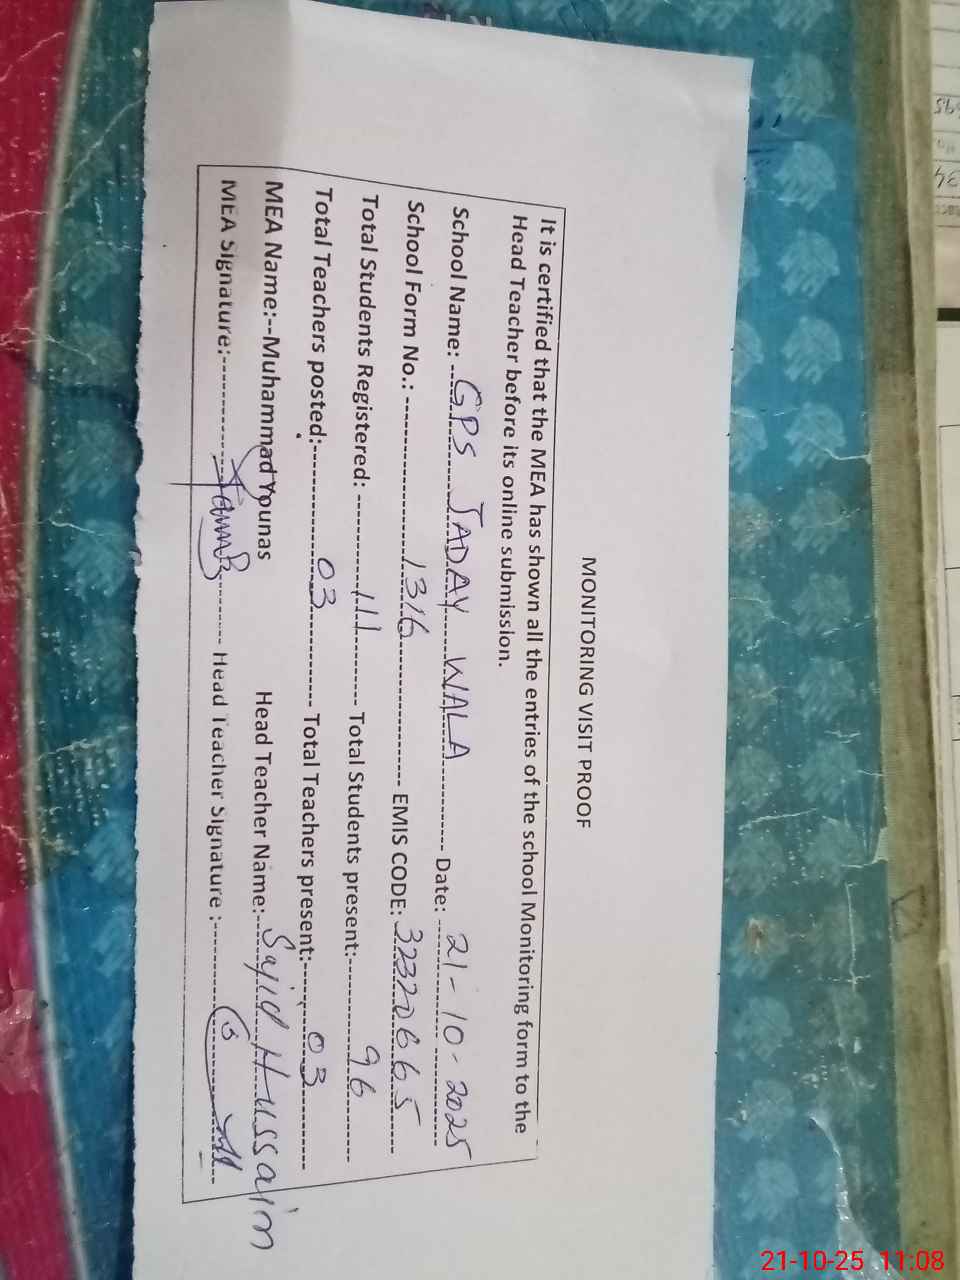 MONITORING VISIT PROOF
It is certified that the MEA has shown all the entries of the school Monitoring form to the
Head Teacher before its online submission.
School Name: GPS JADAY WALA Date: 21-10-2025
School Form No.: 1316 EMIS CODE: 32320665
Total Students Registered: 111 Total Students present: 96
Total Teachers posted: 03 Total Teachers present: 03
MEA Name:--Muhammad Younas Head Teacher Name: Sajid Hussain
MEA Signature: Head Teacher Signature :
21-10-25 11:08